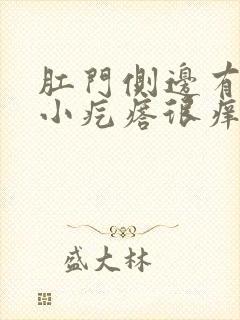 肛門側邊有
小疙瘩很痒
盛大林